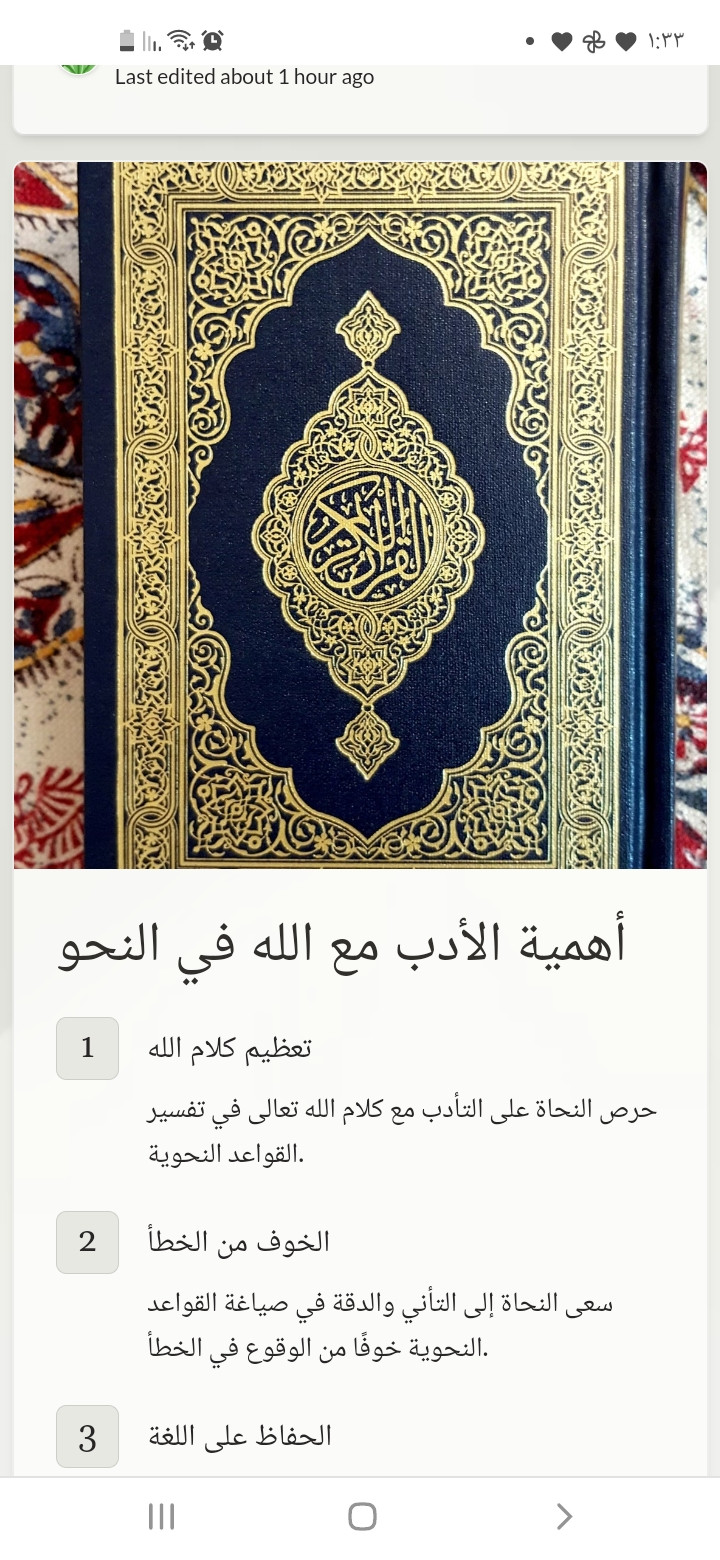 ١:٣٣
Last edited about 1 hour ago
القرآن الكريم
أهمية الأدب مع الله في النحو
1
تعظيم كلام الله
حرص النحاة على التأدب مع كلام الله تعالى في تفسير
القواعد النحوية.
2
الخوف من الخطأ
سعى النحاة إلى التأني والدقة في صياغة القواعد
النحوية خوفًا من الوقوع في الخطأ.
3
الحفاظ على اللغة